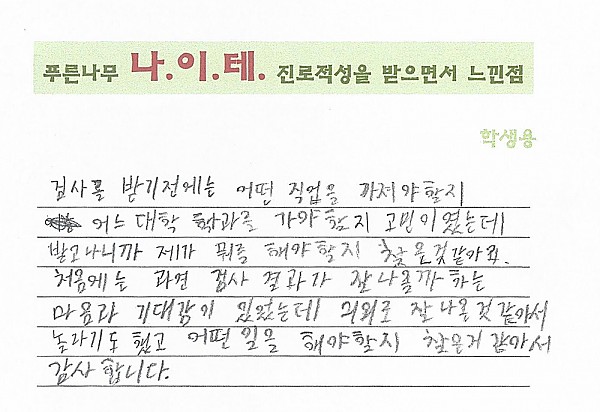 푸른나무 나.이.테. 진로적성을 받으면서 느낀점
학생용
검사를 받기전에는 어떤 직업을 가져야할지
어느 대학 학과를 가야할지 고민이였는데
받고나니까 제가 뭐를 해야할지 찾은것같아요.
처음에는 과연 검사 결과가 잘나올까 하는
마음과 기대감이 있었는데 의외로 잘 나온것 같아서
놀라기도 했고 어떤 일을 해야할지 찾은거 같아서
감사합니다.